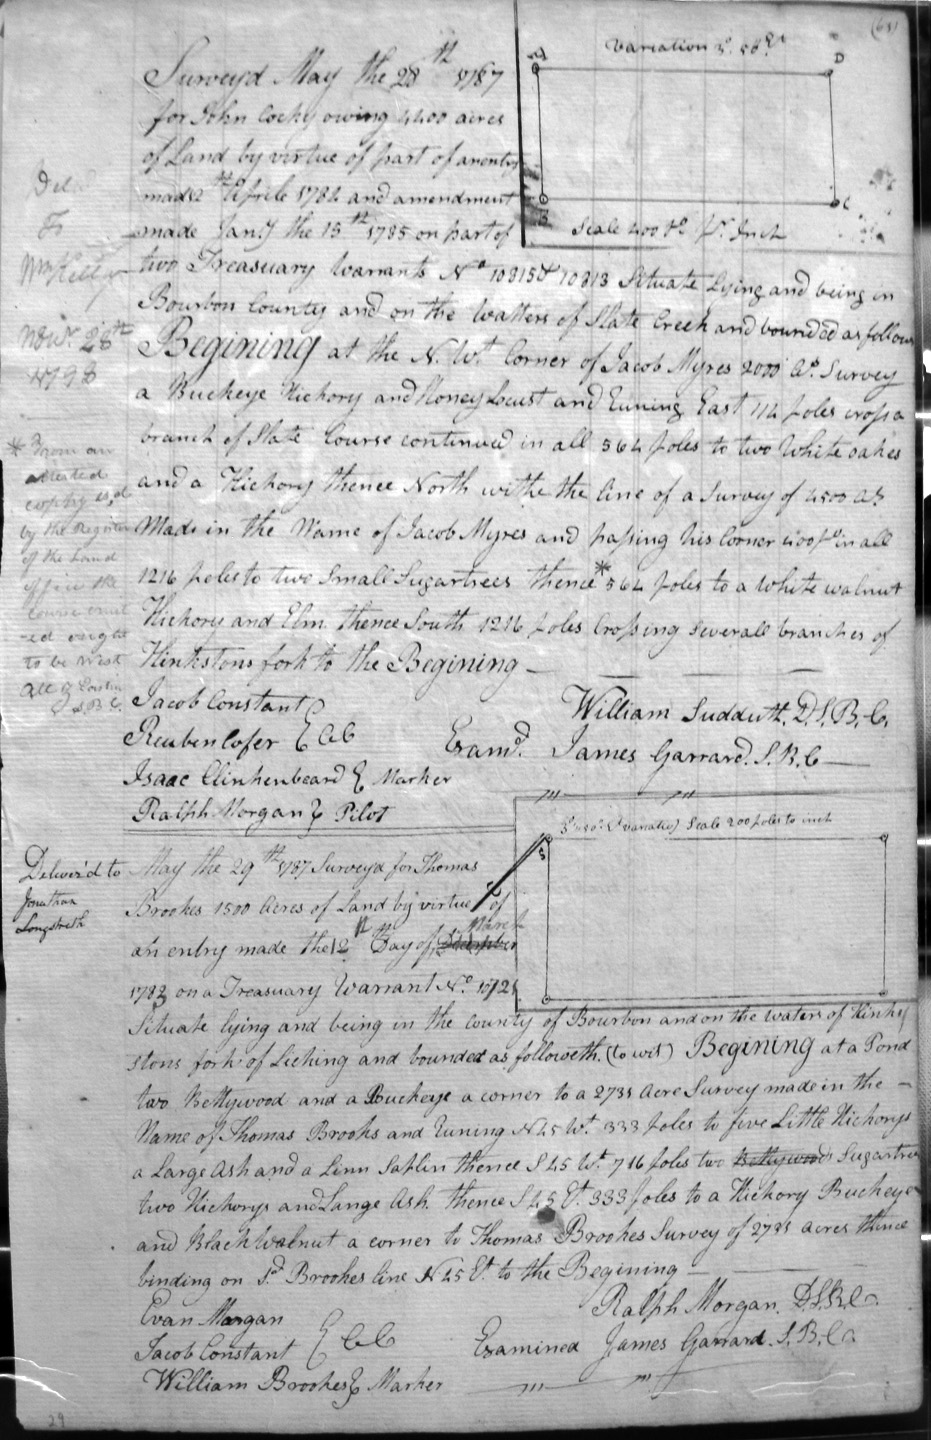 (63)
Variation 3°. 56' Et
D
Scale 400 Po. pr. Inch
Surveyd May the 28th 1787
for John Cocky owing 4400 acres
of Land by virtue of part of an entry
made 2th Aprile 1784 and amendment
made Jany. the 15th 1785 on part of
two Treasuary Warrants No 10815 & 10813 Situate Lying and being in
Bourbon County and on the Watters of Slate Creek and bounded as follows
Begining at the N. Wt. Corner of Jacob Myres 2000 As. Survey
a Buckeye Hickory and Honey Locust and Runing East 114 poles crosg a
branch of Slate Course continued in all 564 poles to two White oakes
and a Hickory thence North withe the line of a Survey of 4500 As
Made in the Name of Jacob Myres and pasing his Corner 400 po in all
1216 poles to two Small Sugartrees thence * 564 poles to a White walnut
Hickory and Elm thence South 1216 poles Crosing Severall branches of
Hinkstons fork to the Begining
Deld
To
Wm Kelly
Novr. 28th
1798
* From an
attested
copy
by the Register
of the Land
office the
Course
-ed ought
to be West
S B C.
Jacob Constant
Reuben Cofer } C C C
Isaac Clinkenbeard } Marker
Ralph Morgan } Pilot
William Sudduth. D.S.B.C.
Examd. James Garrard. S.B.C
3° 50' Et variation Scale 200 poles to inch
S
Deliver'd to
Jonathan
Longstreth
May the 29th 1787 Surveyd for Thomas
Brookes 1500 Acres of Land by virtue of
an entry made the 12th Day of March
1782 on a Treasuary Warrant No.
Situate lying and being in the county of Bourbon and on the waters of Hink
stons fork of Licking and bounded as followeth. (to wit) Begining at a Pond
two Bettywood and a Buckeye a corner to a 2735 Acre Survey made in the
Name of Thomas Brooks and Runing N 45 Wt. 333 poles to five Little Hickorys
a Large Ash and a Linn Saplin thence S 45 Wt 716 poles two Bettywoods Sugartree
two Hickorys and Large Ash. thence S 45 Et. 333 poles to a Hickory Buckeye
and Black Walnut a corner to Thomas Brookes Survey of 2735 acres thence
binding on Sd. Brookes line N 45 Et. to the Begining
Evan Morgan
Jacob Constant } C C C
William Brookes } Marker
Ralph Morgan. D.S.B.C.
Examined James Garrard. S.B.C.
29